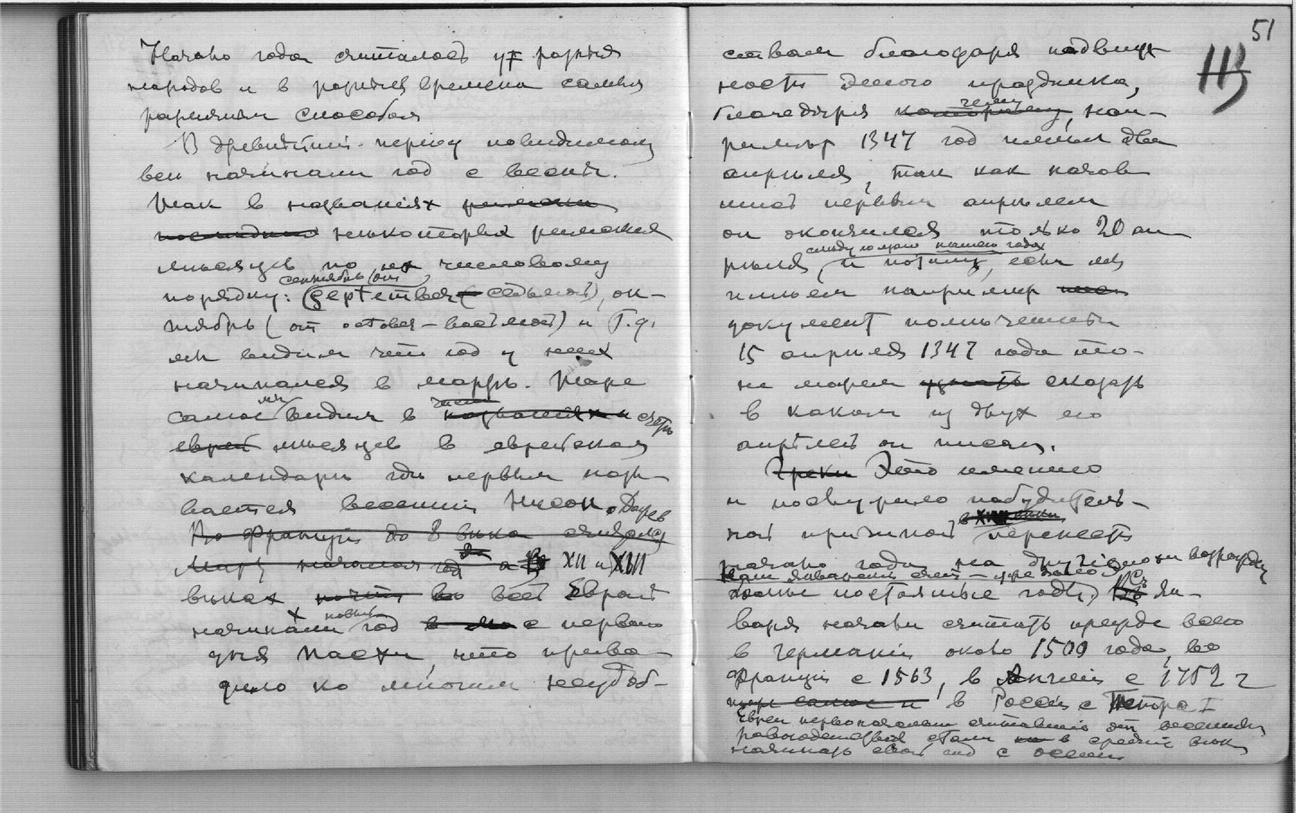 Начало года считалось у разных
народов и в разныя времена самым
различным способом
В древнейший период повидимому
все начинали год с весны.
Так в названиях римских
последних некоторых римских
месяцев по их числовому
сентябрь (от
порядку: (September седьмой), ок-
тябрь (от october – восьмой) и т.д.
мы видим что год у них
начинался в марте. Тоже
самое мы видим в числе названиях и счете
еврей месяцев в еврейском
календаре где первым назы-
вается весенний Нисан.
Во Франции до 8 века
Март началом года а в XII и XIII
веках почти во всей Европе
начинали новый год с первого
дня Пасхи, что приво-
дило ко многим неудоб-
51
ствам благодаря подвиж
ности этого праздника,
благодаря которому чему, нап-
ример 1347 год имел два
апреля, так как начав
шись первым апрелем
он окончился только 20 ап
следующаго нашего года
реля, и потому, если мы
имеем например
документ помеченный
15 апреля 1347 года то
не можем узнать сказать
в каком из двух его
апрелей он писан.
Греки Это именно
и послужило побудитель-
ной причиной перенести
начало года на другие
более постоянные годы. С Ян-
варя начали считать прежде всего
в Германии около 1500 года, во
Франции с 1563, в Англии с 1752 г
тоже самое и в России с Петра I
Евреи первоначально считавшие от весенняго
равноденствия стали в средние века
начинать свой год с осени